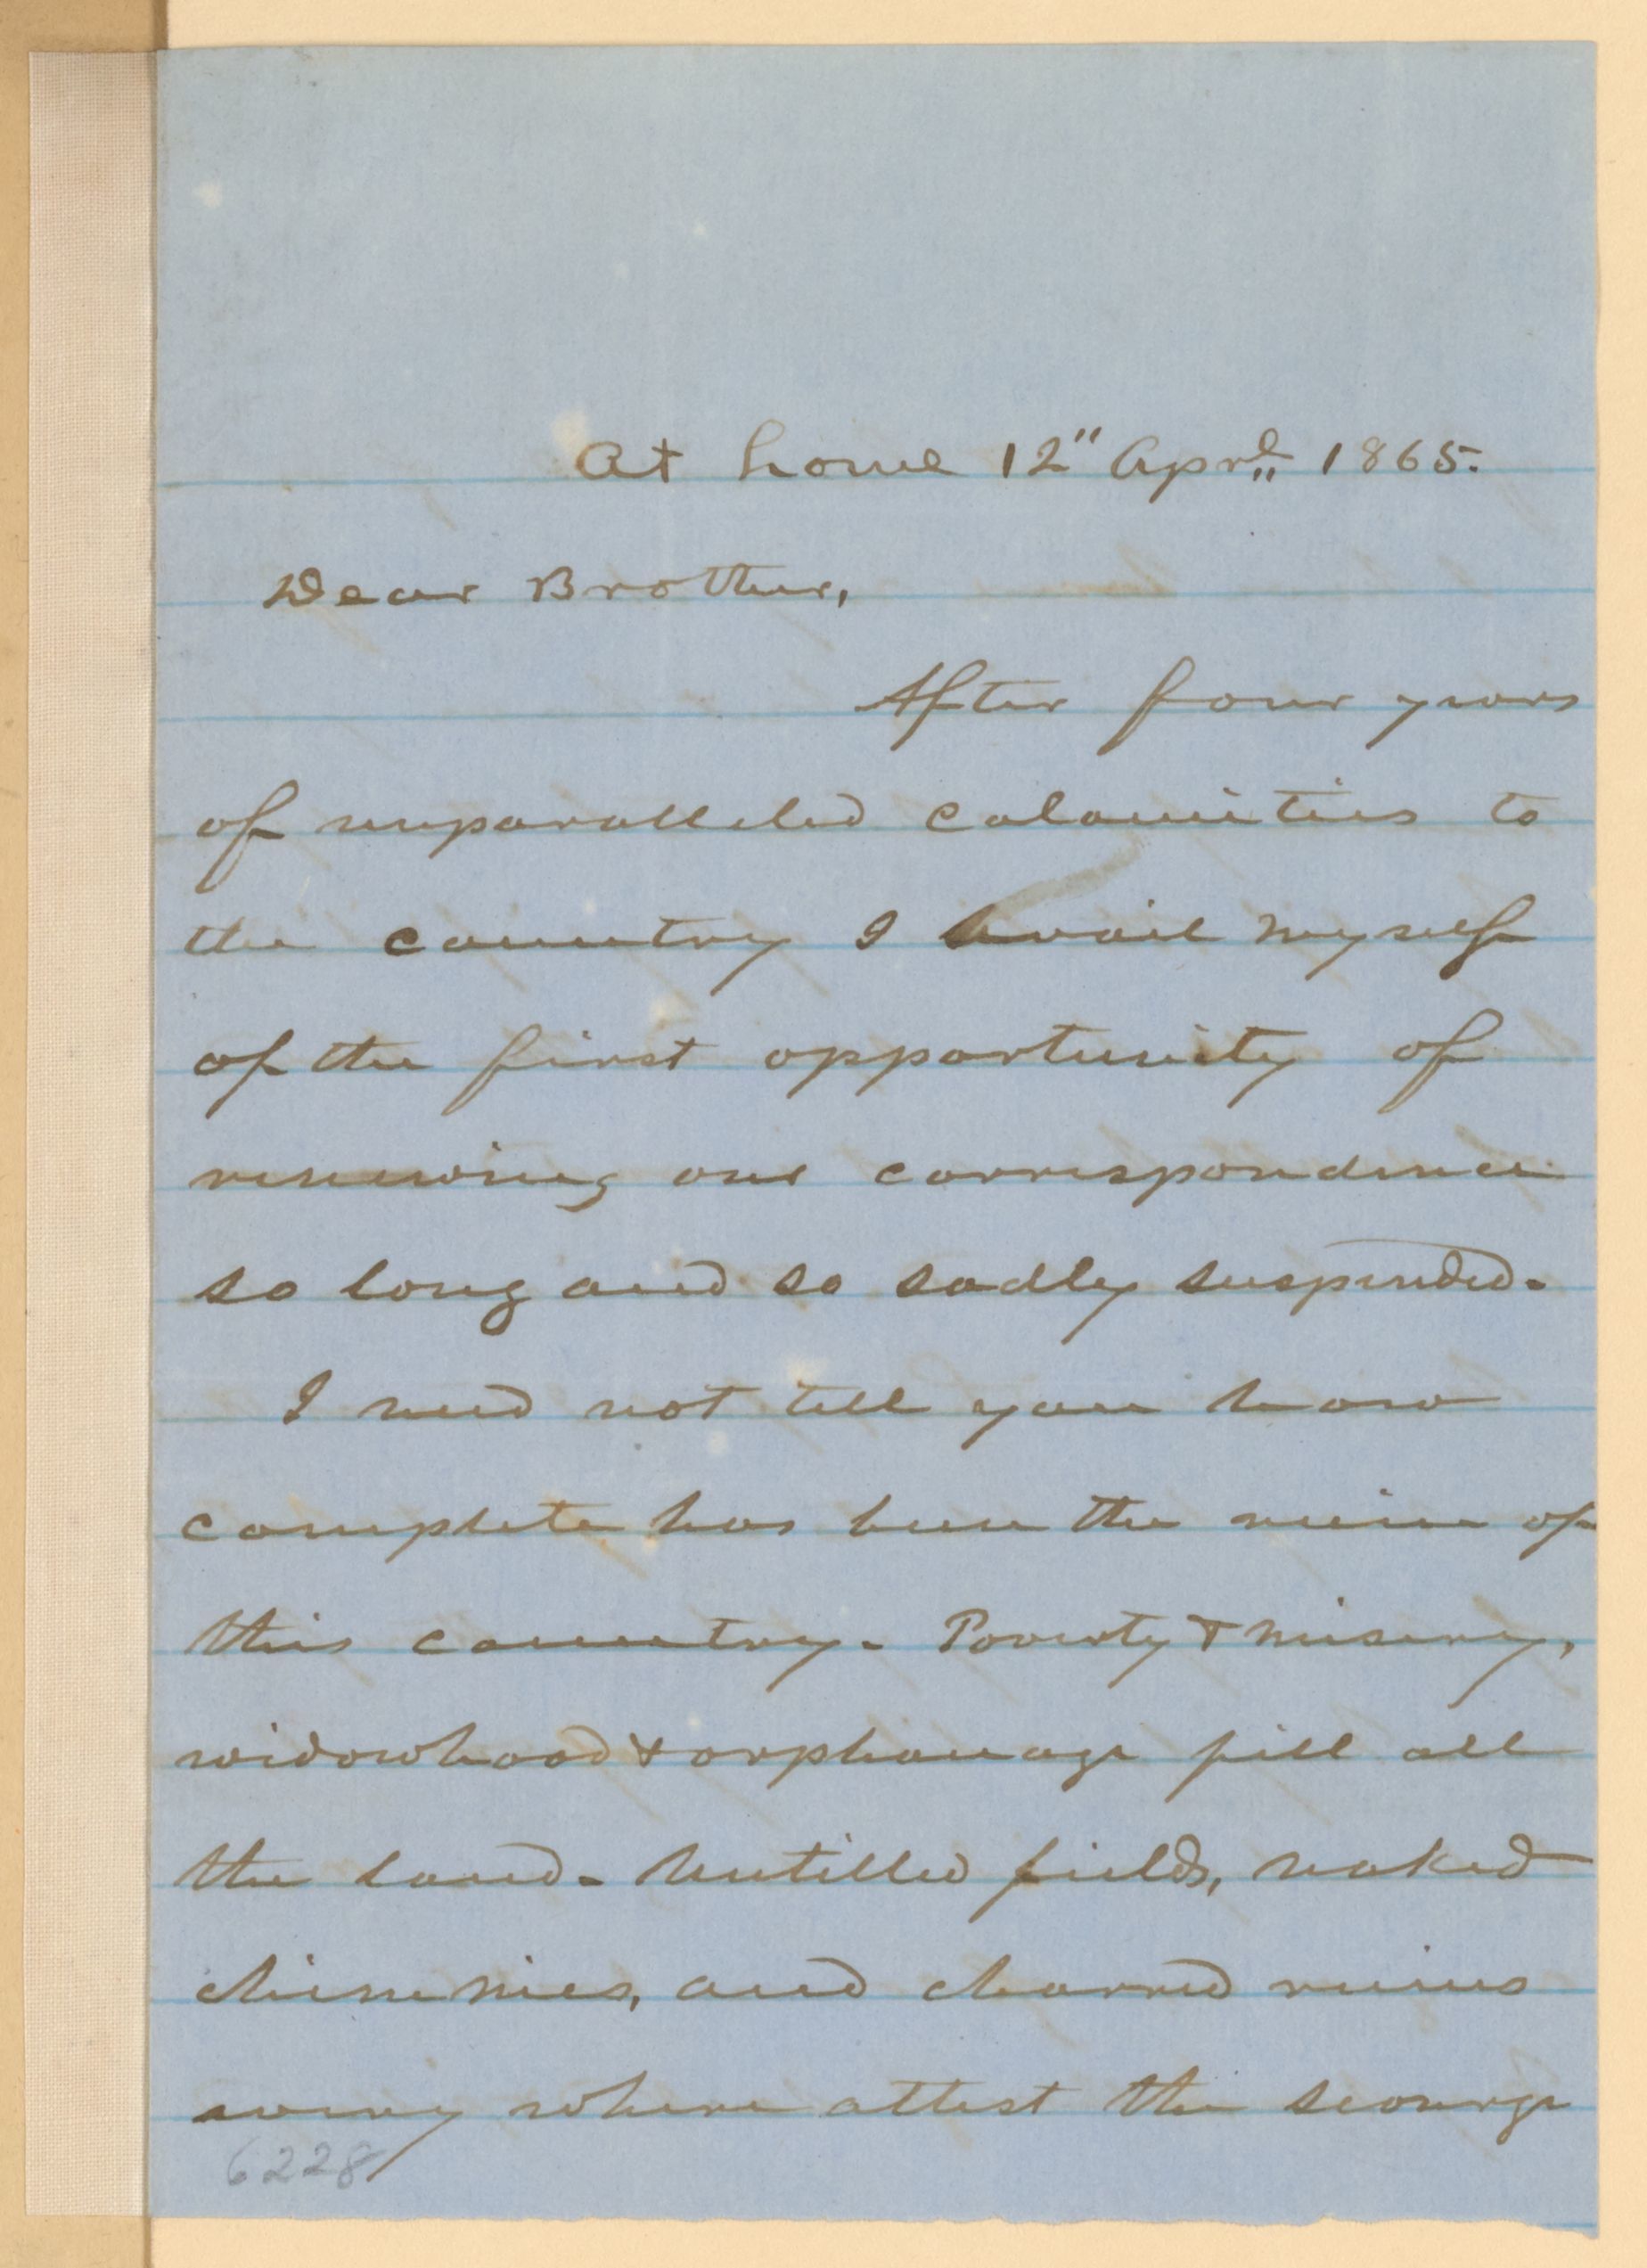 At home 12" Apr.l 1865.
Dear Brother,
After four years
of unparalleled calamities to
the country I avail myself
of the first opportunity of
renewing our correspondence
so long and so sadly suspended.
I need not tell you how
complete has been the ruin of
this country. Poverty & misery,
widowhood & orphanage fill all
the land. Untilled fields, naked
chimnies, and charred ruins
every where attest the scourge
6228